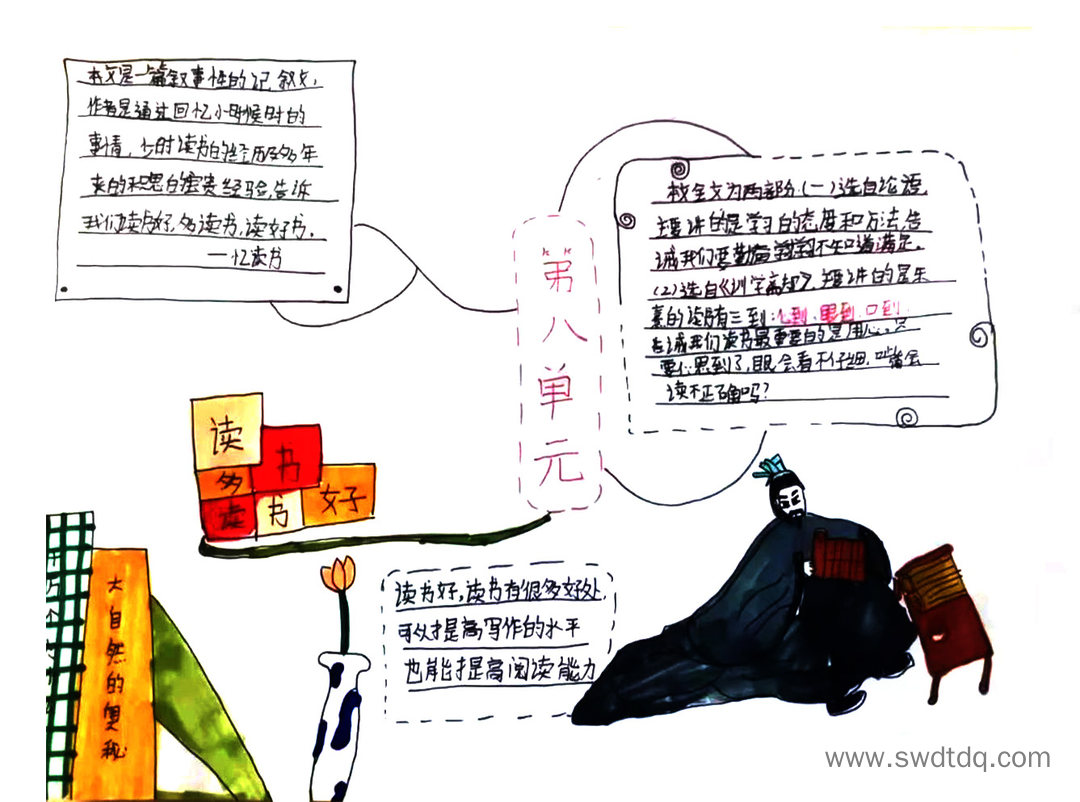 本文是一篇叙事性的记叙文,
作者是通过回忆小时候时的
事情,少时读书的经历及多年
来的积累的宝贵经验,告诉
我们读书好,多读书,读好书。
——忆读书
第八单元
本文全文为两部分(一)选自论语,
主要讲的是学习的态度和方法,告
诫我们要勤奋 不知道满足。
(2)选自《训学斋规》,主要讲的是朱
熹的读书有三到:心到、眼到、口到,
告诫我们读书最重要的是用心。只
要心思到了,眼会看不仔细,嘴会
读不正确吗?
读
书
多 好
读 书
读书好,读书有很多好处,
可以提高写作的水平
也能提高阅读能力
大自然的奥秘
www.swdtdq.com